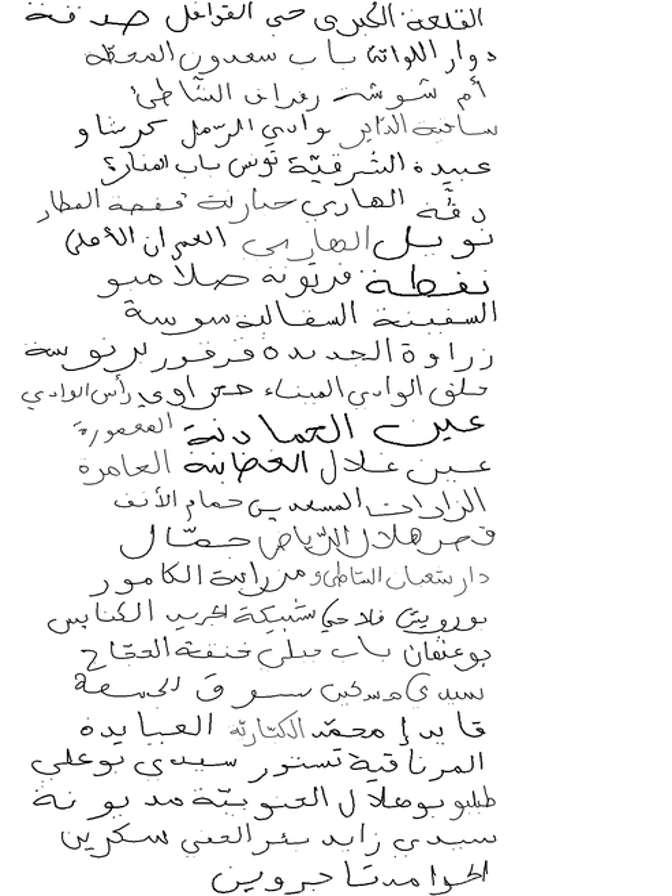 القلعة الكبرى حي القوافل صدقة
دوار اللواتة باب سعدون المحطة
أم شوشة رفراف الشاطئ
ساقية الداير بوادي الرمل كرشاو
عبيدة الشرقيّة تونس باب المنارة
دقّة الهادي حبارنة قفصة المطار
نويل العمران الأعلى
نفطة فريونة صلامبو
السفينة السقالبة سوسة
زراوة الجديدة قرقور لرنوسة
حلق الوادي الميناء رأس الوادي
عين الحمادنة المقصورة
عين غلال الغضابنة العامرة
الزارات المسعدين حمام الأنف
قصر هلال الرّياض جمّال
دار شعبان الشاطئ مزرايبة الكامور
بورويس فلاحي شبيكة الجريد الكنايس
بوعثمان باب جبلي خنقة الحجاج
سيدي مسكين سوق الجمعة
قايد إ محمّد الكتارنة العبايدة
المرناقية تستور سيدي بوعلي
طبلبو بوهلال الجنوبيّة مديونة
سيدي زايد بئر الحفي سكرين
الحوامد تاجروين